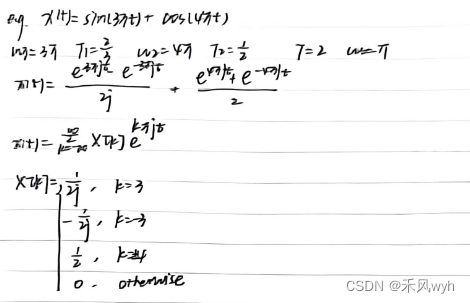 e.g. x(t)=sin(3πt)+cos(4πt)
w1=3π T1=2/3 w2=4π T2=1/2 T=2 w=π
x(t)= (e^{3πjt} - e^{-3πjt})/2j + (e^{4πjt}+e^{-4πjt})/2
x(t)= ∑_{k=-∞}^{∞} X[k]e^{kπjt}
X[k]= { 1/2j, k=3
-1/2j, k=-3
1/2, k=±4
0, otherwise
CSDN @禾风wyh